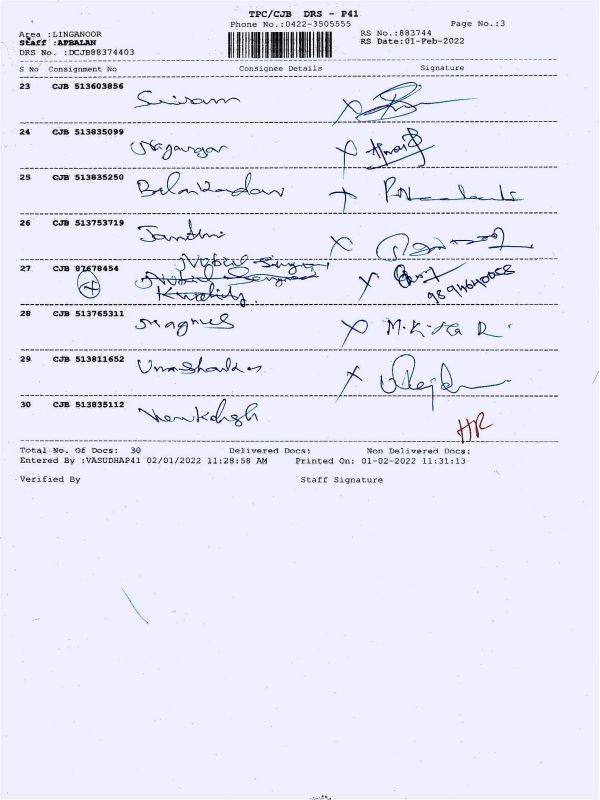 TPC/CJB DRS - P41
Phone No.:0422-3505555
Page No.:3
Area :LINGANOOR
RS No.:883744
Staff :APBALAN
RS Date:01-Feb-2022
DRS No. :DCJB88374403
S No Consignment No Consignee Details Signature
23 CJB 513603856 Sriram X
24 CJB 513835099 Nagarajan X
25 CJB 513835250 Balakandan
26 CJB 513753719 Janthi X
27 CJB 87678454 X
9894640058
28 CJB 513765311 Magnus X M.K
29 CJB 513811652 Umashankar X
30 CJB 513835112 Venkatesh HR
Total No. Of Docs: 30 Delivered Docs: Non Delivered Docs:
Entered By :VASUDHAP41 02/01/2022 11:28:58 AM Printed On: 01-02-2022 11:31:13
Verified By Staff Signature